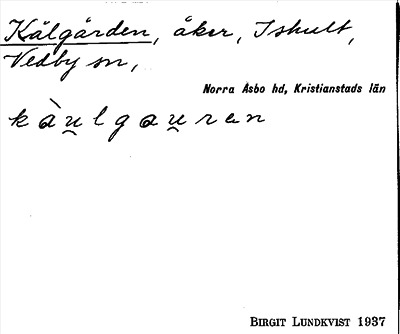 Kålgården, åker, Ishult,
Vedby sn,
Norra Åsbo hd, Kristianstads län
kàu̯lgau̯ran
BIRGIT LUNDKVIST 1937